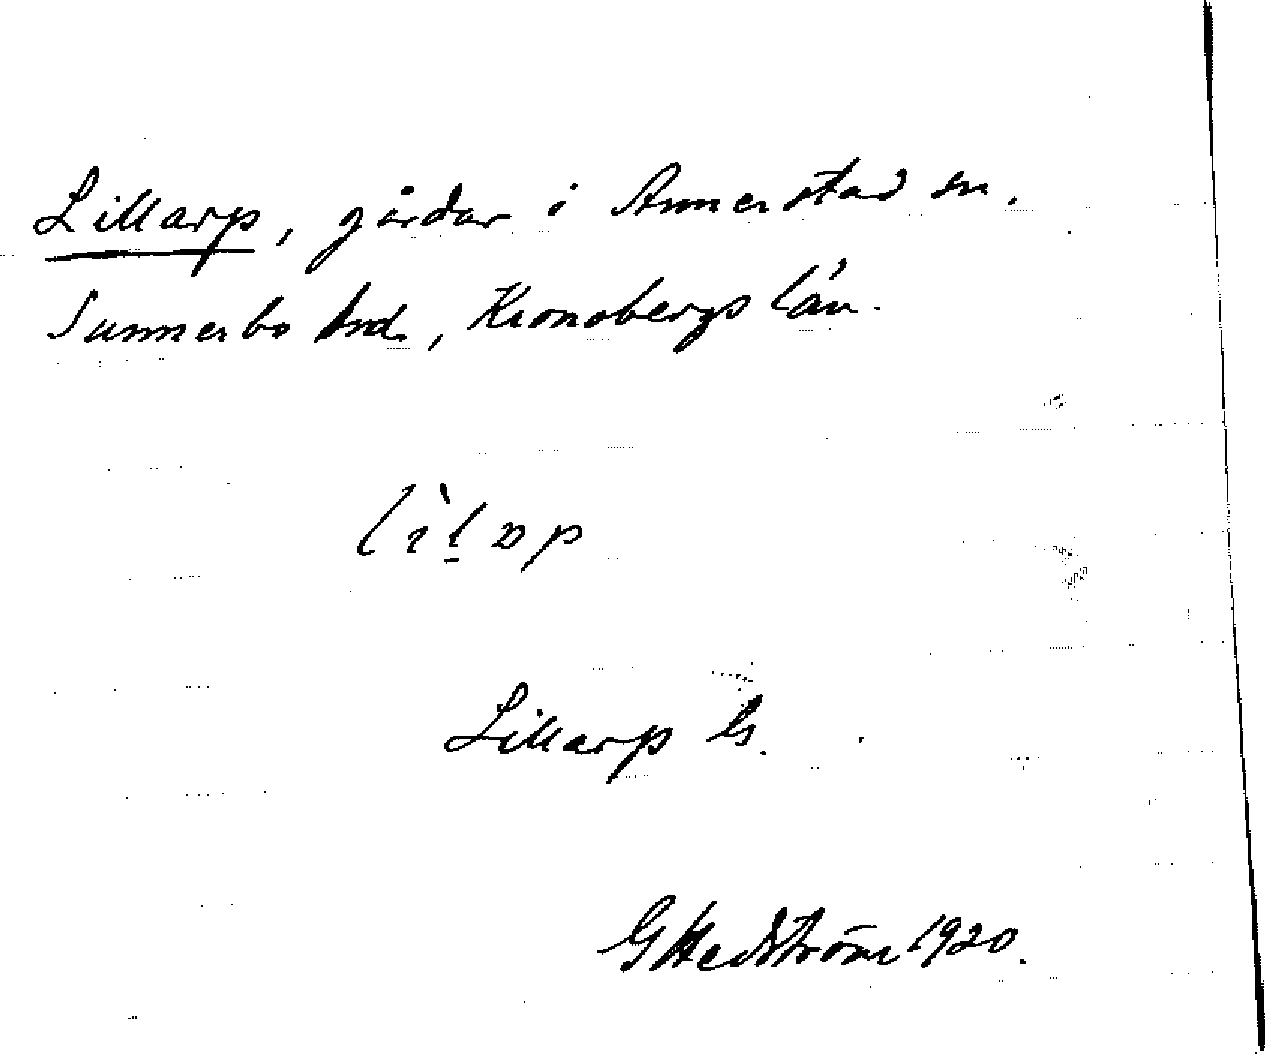 Lillarp, gårdar i Annerstad sn.
Sunnerbo hrd., Kronobergs län.
Lillarp
GHedström 1920.